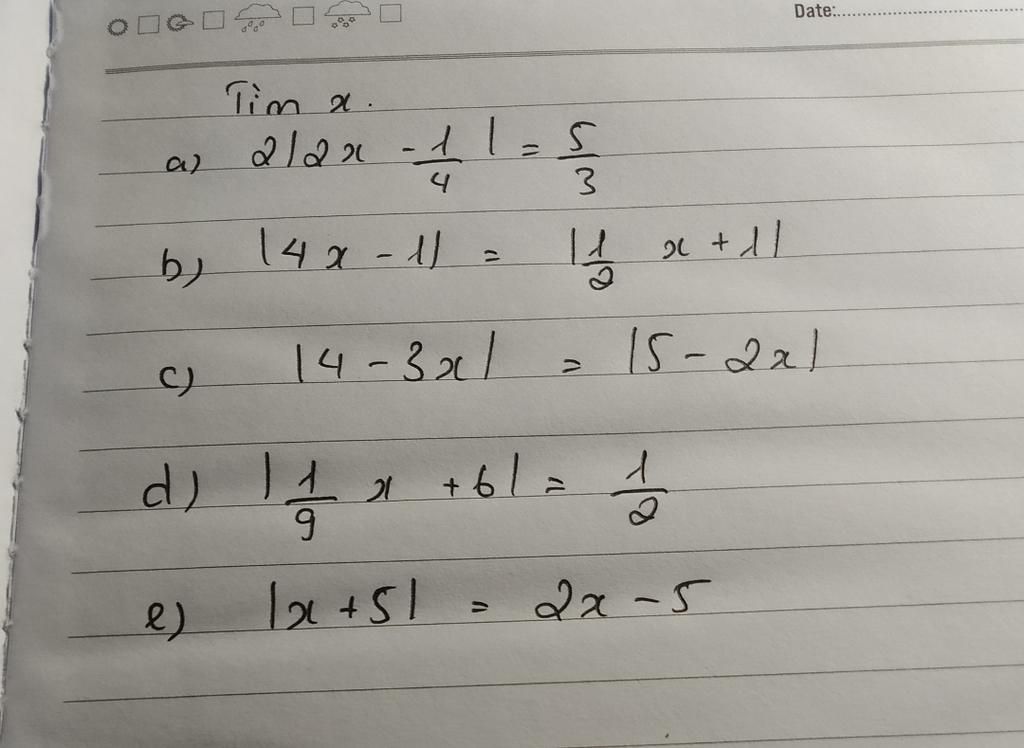 Date:
Tìm x.
a) 2|2x - 1/4| = 5/3
b) |4x - 1| = |1/2 x + 1|
c) |4 - 3x| = |5 - 2x|
d) |1/9 x + 6| = 1/2
e) |x + 5| = 2x - 5